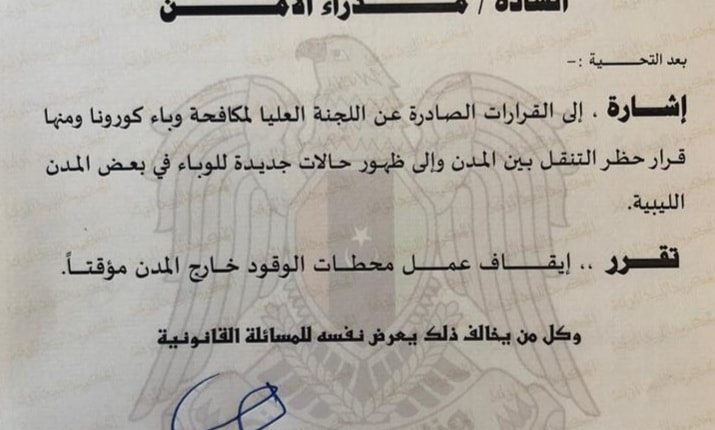 السادة / مدراء الأمن
بعد التحية :-
إشارة ، إلى القرارات الصادرة عن اللجنة العليا لمكافحة وباء كورونا ومنها
قرار حظر التنقل بين المدن وإلى ظهور حالات جديدة للوباء في بعض المدن
الليبية.
تقرر .. إيقاف عمل محطات الوقود خارج المدن مؤقتاً.
وكل من يخالف ذلك يعرض نفسه للمسائلة القانونية